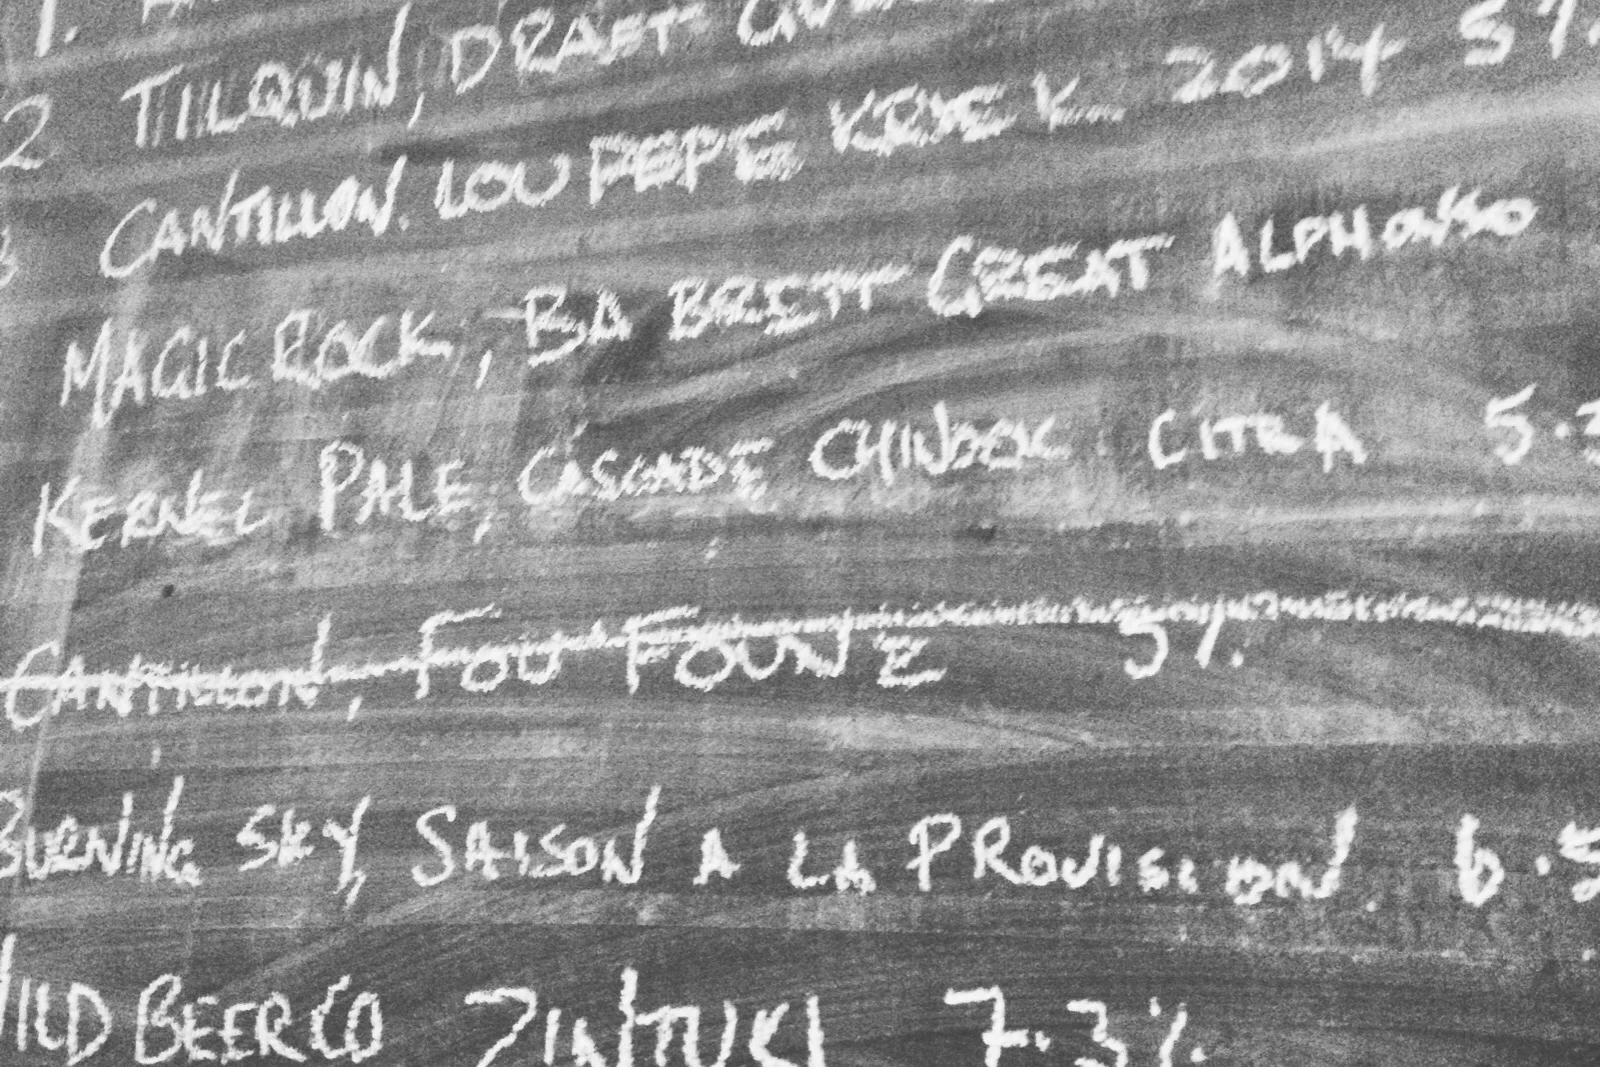 1.
2 TIILQUIN, DRAFT
3 CANTILLON. LOU PEPE KRIEK 2014 5%
MAGIC ROCK, BA BRETT GREAT ALPHONSO
KERNEL PALE, CASCADE CHINOOK CITRA 5.3
CANTILLON, FOU FOUNE 5%.
BURNING SKY, SAISON A LA PROVISION. 6.5
WILD BEER CO ZINTUKI 7.3%